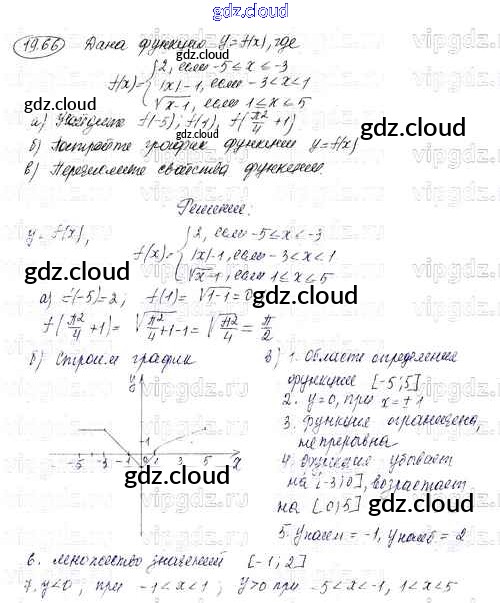 gdz.cloud
19.66 Дана функцию y=f(x), где
f(x)= { 2, если -5≤x≤-3
|x|-1, если -3<x<1
√x-1, если 1≤x≤5
а) Найдите f(-5); f(1), f(π²/4+1)
б) Постройте график функции y=f(x)
в) Перечислите свойства функции.
Решение:
y=f(x),
f(x)= { 2, если -5≤x≤-3
|x|-1, если -3<x<1
√x-1, если 1≤x≤5
а) f(-5)=2; f(1)=√1-1=0
f(π²/4+1)=√π²/4+1-1=√π²/4=π/2
б) Строим график
y
1
-5 -3 -1 0 1 3 5 x
в) 1. Области определения
функции [-5;5]
2. y=0, при x=±1
3. Функция ограничена,
непрерывна
4. Функция убывает
на [-3;0], возрастает
на [0;5]
5. yнаим=-1, yнаиб=2
6. множество значений [-1;2]
7. y<0, при -1<x<1; y>0 при -5<x<-1, 1<x≤5
gdz.cloud